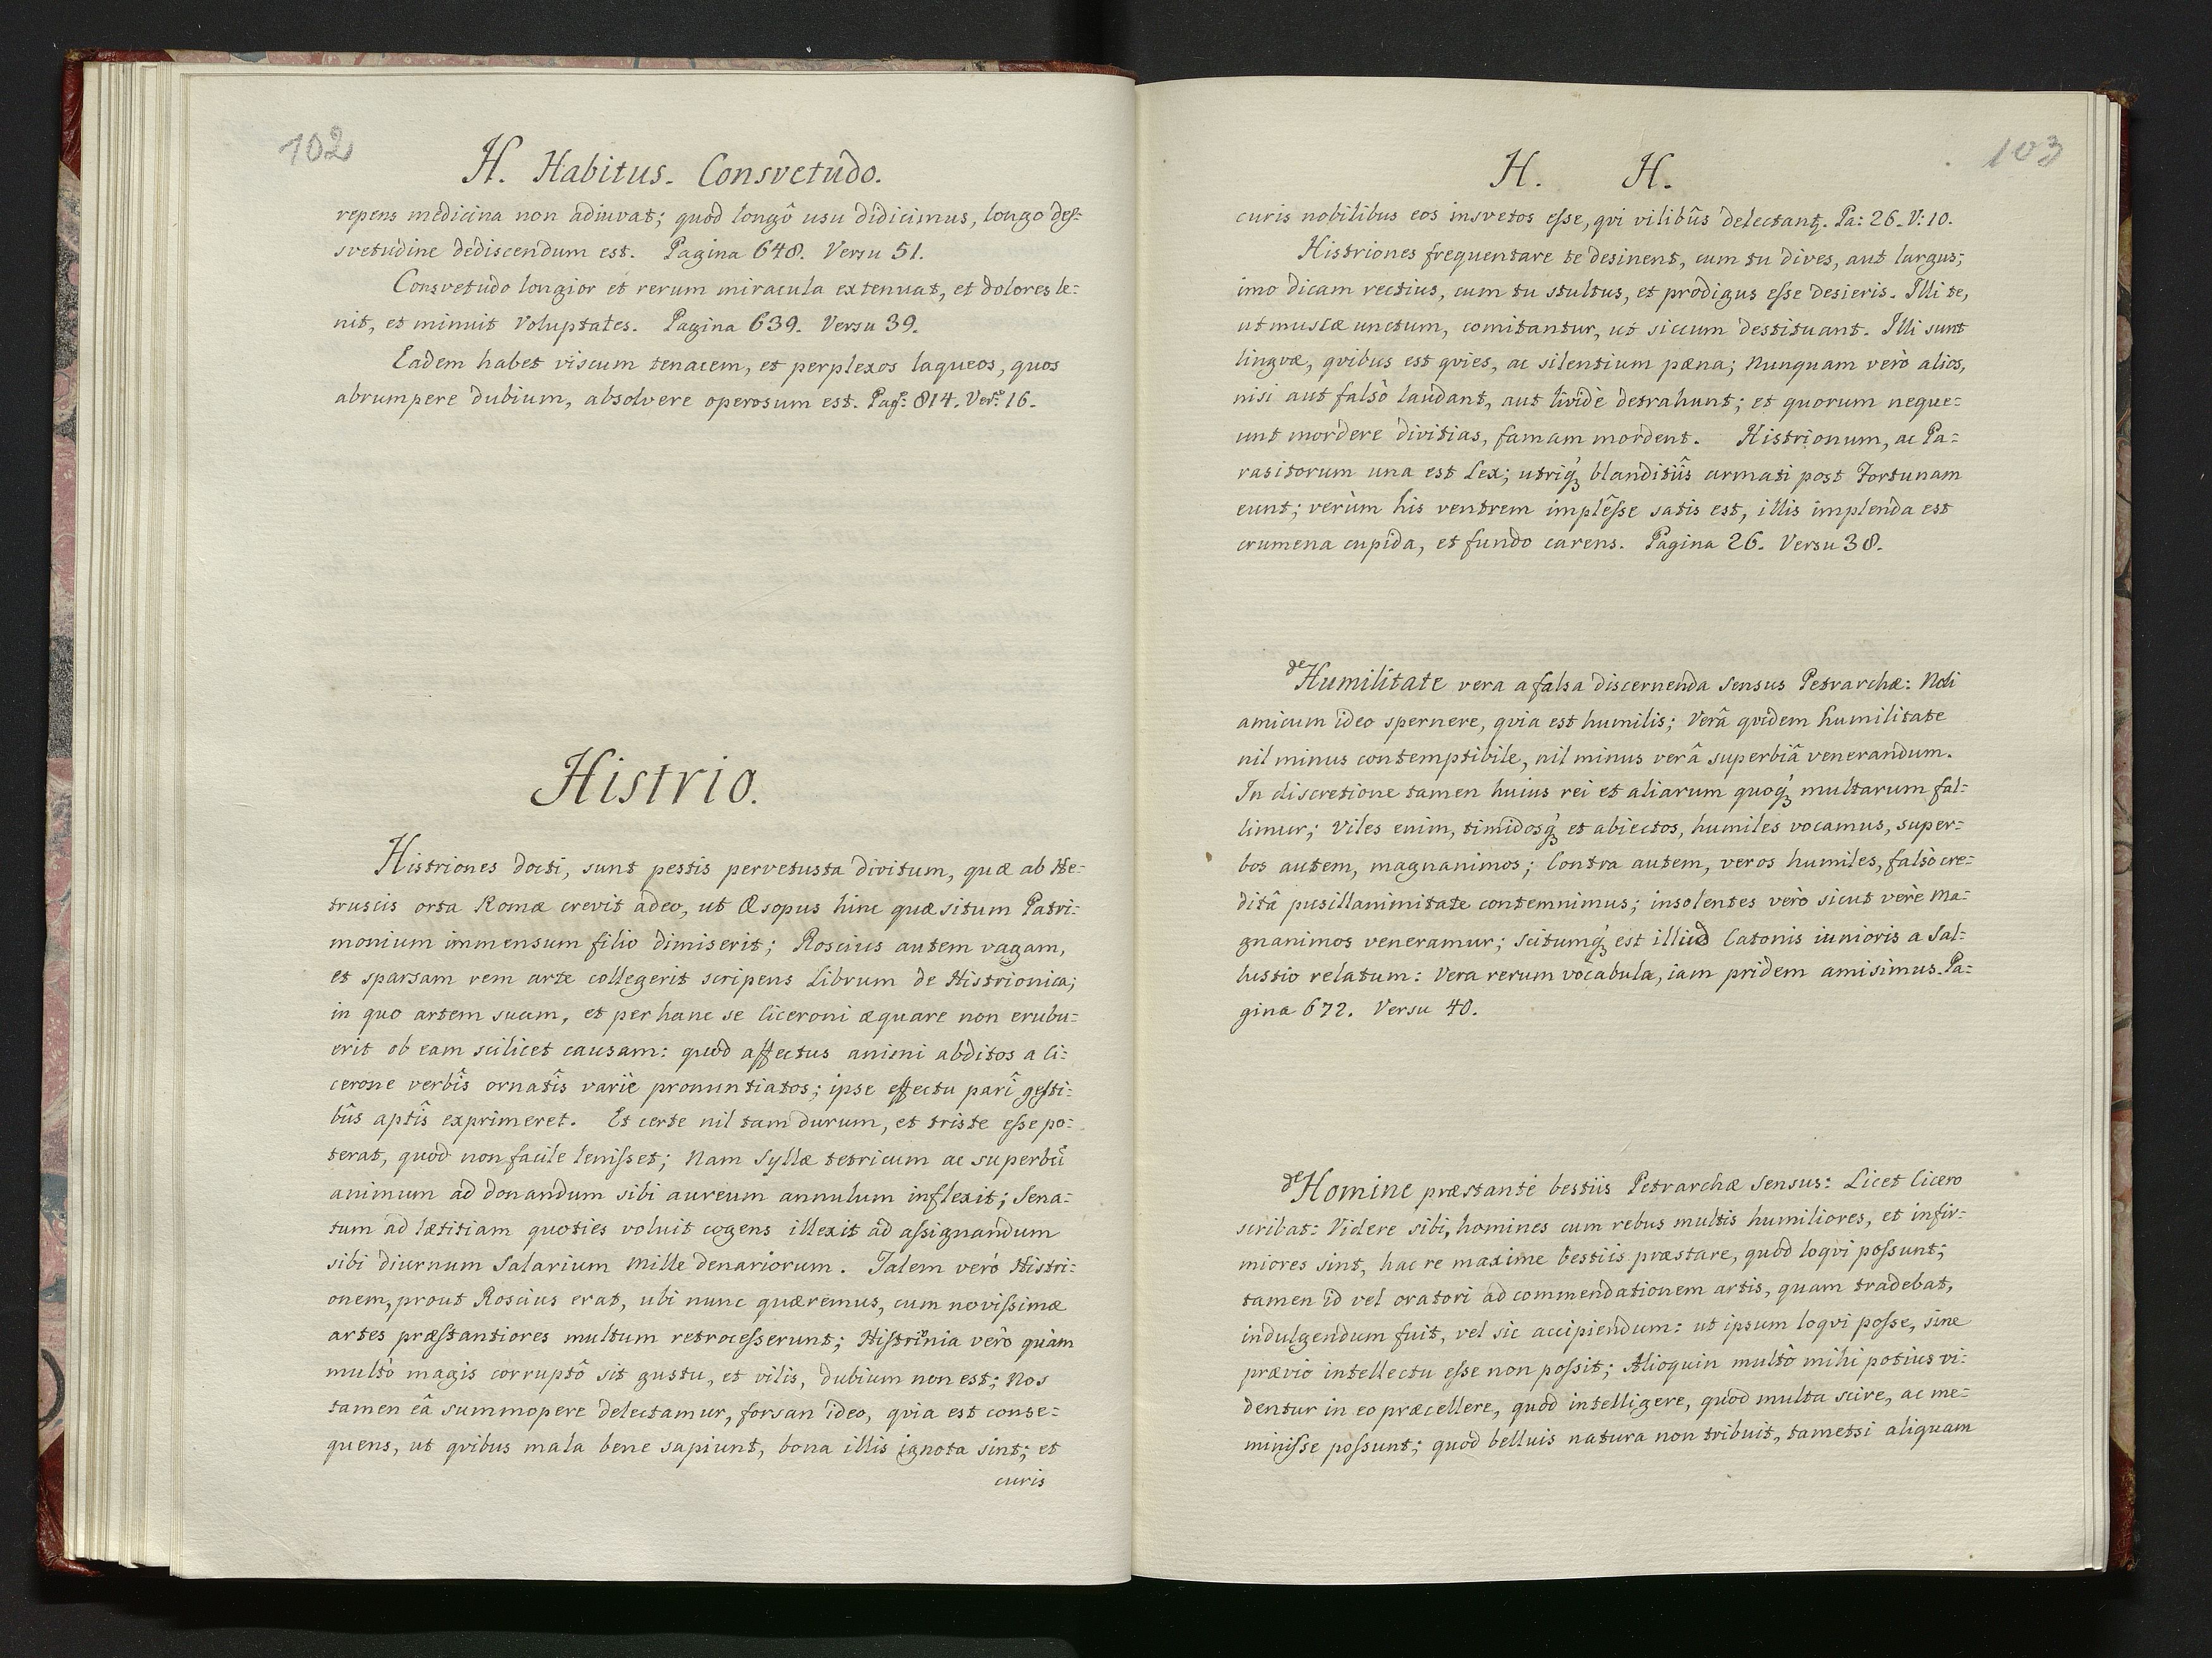 102
H. Habitus. Consvetudo.
repens medicina non adiuvat; quod longô usu didicimus, longo des-
svetudine dediscendum est. Pagina 648. Versu 51.
Consvetudo longior et rerum miracula extenuat, et dolores le:
nit, et minuit Voluptates. Pagina 639. Versu 39.
Eadem habet viscum tenacem, et perplexos laqueos, quos
abrumpere dubium, absolvere operosum est. Pag: 814. Ver: 16.
Histrio.
Histriones docti, sunt pestis pervetusta divitum, quæ ab He:
truscis orta Romæ crevit adeo, ut Æsopus hinc quæsitum Patri:
monium immensum filio dimiserit; Roscius autem vagam,
et sparsam rem arte collegerit scripens Librum de Histrionica;
in quo artem suam, et per hanc se Ciceroni æquare non erubu:
erit ob eam scilicet causam: quod affectus animi abditos a Ci:
cerone verbîs ornatîs variè pronuntiatos; ipse effectu parî gesti:
bûs aptîs exprimeret. Et certe nil tam durum, et triste esse po:
terat, quod non facile lenisset; Nam Syllæ tetricum ac superbū
animum ad donandum sibi aureum annulum inflexit; Sena:
tum ad lætitiam quoties voluit cogens illexit ad assignandum
sibi diurnum Salarium Mille denariorum. Talem verò Histri:
onem, prout Roscius erat, ubi nunc quæremus, cum novissimæ
artes præstantiores multum retrocesserunt; Histrionia verò quàm
multò magis corruptô sit gustu, et vilis, dubium non est; Nos
tamen eâ summopere delectamur, forsan ideo, qvia est conse:
quens, ut qvibus mala bene sapiunt, bona illis ignota sint; et
curis
103
H. H.
curis nobilibus eos insvetos esse, qvi vilibûs delectantꝫ. Pa: 26. V: 10.
Histriones frequentare te desinent, cum tu dives, aut largus;
imo dicam rectius, cum tu stultus, et prodigus esse desieris. Illi te,
ut muscæ unctum, comitantur, ut siccum destituant. Illi sunt
lingvæ, qvibus est qvies, ac silentium pæna; Nunquam verò alios,
nisi aut falsò laudant, aut lividè detrahunt; et quorum neque:
unt mordere divitias, famam mordent. Histrionum, ac Pa:
rasitorum una est Lex; utriqꝫ blanditiîs armati post Fortunam
eunt; verùm his ventrem implêsse satis est, illis implenda est
crumena cupida, et fundo carens. Pagina 26. Versu 38.
de Humilitate vera a falsa discernenda Sensus Petrarchæ: Noli
amicum ideo spernere, qvia est humilis; Verâ qvidem humilitate
nil minus contemptibile, nil minus verâ superbiâ venerandum.
In discretione tamen huius rei et aliarum quoqꝫ multarum fal:
limur; Viles enim, timidosqꝫ et abiectos, humiles vocamus, super:
bos autem, magnanimos; Contra autem, veros humiles, falsò cre:
ditâ pusillanimitate contemnimus; insolentes verò sicut verè Ma:
gnanimos veneramur; Scitumqꝫ est illud Catonis iunioris a Sal:
lustio relatum: Vera rerum vocabula, iam pridem amisimus. Pa:
gina 672. Versu 40.
de Homine præstante bestiis Petrarchæ Sensus: Licet Cicero
scribat: Videre sibi, homines cum rebus multis humiliores, et infir:
miores sint, hac re maxime bestiis præstare, quòd loqvi possunt;
tamen id vel oratori ad commendationem artis, quam tradebat,
indulgendum fuit, vel sic accipiendum: ut ipsum loqvi posse, sine
prævio intellectu esse non possit; Alioquin multò mihi potius vi:
dentur in eo præcellere, quòd intelligere, quòd multa scire, ac me:
minisse possunt; quod belluis natura non tribuit, tametsi aliquam